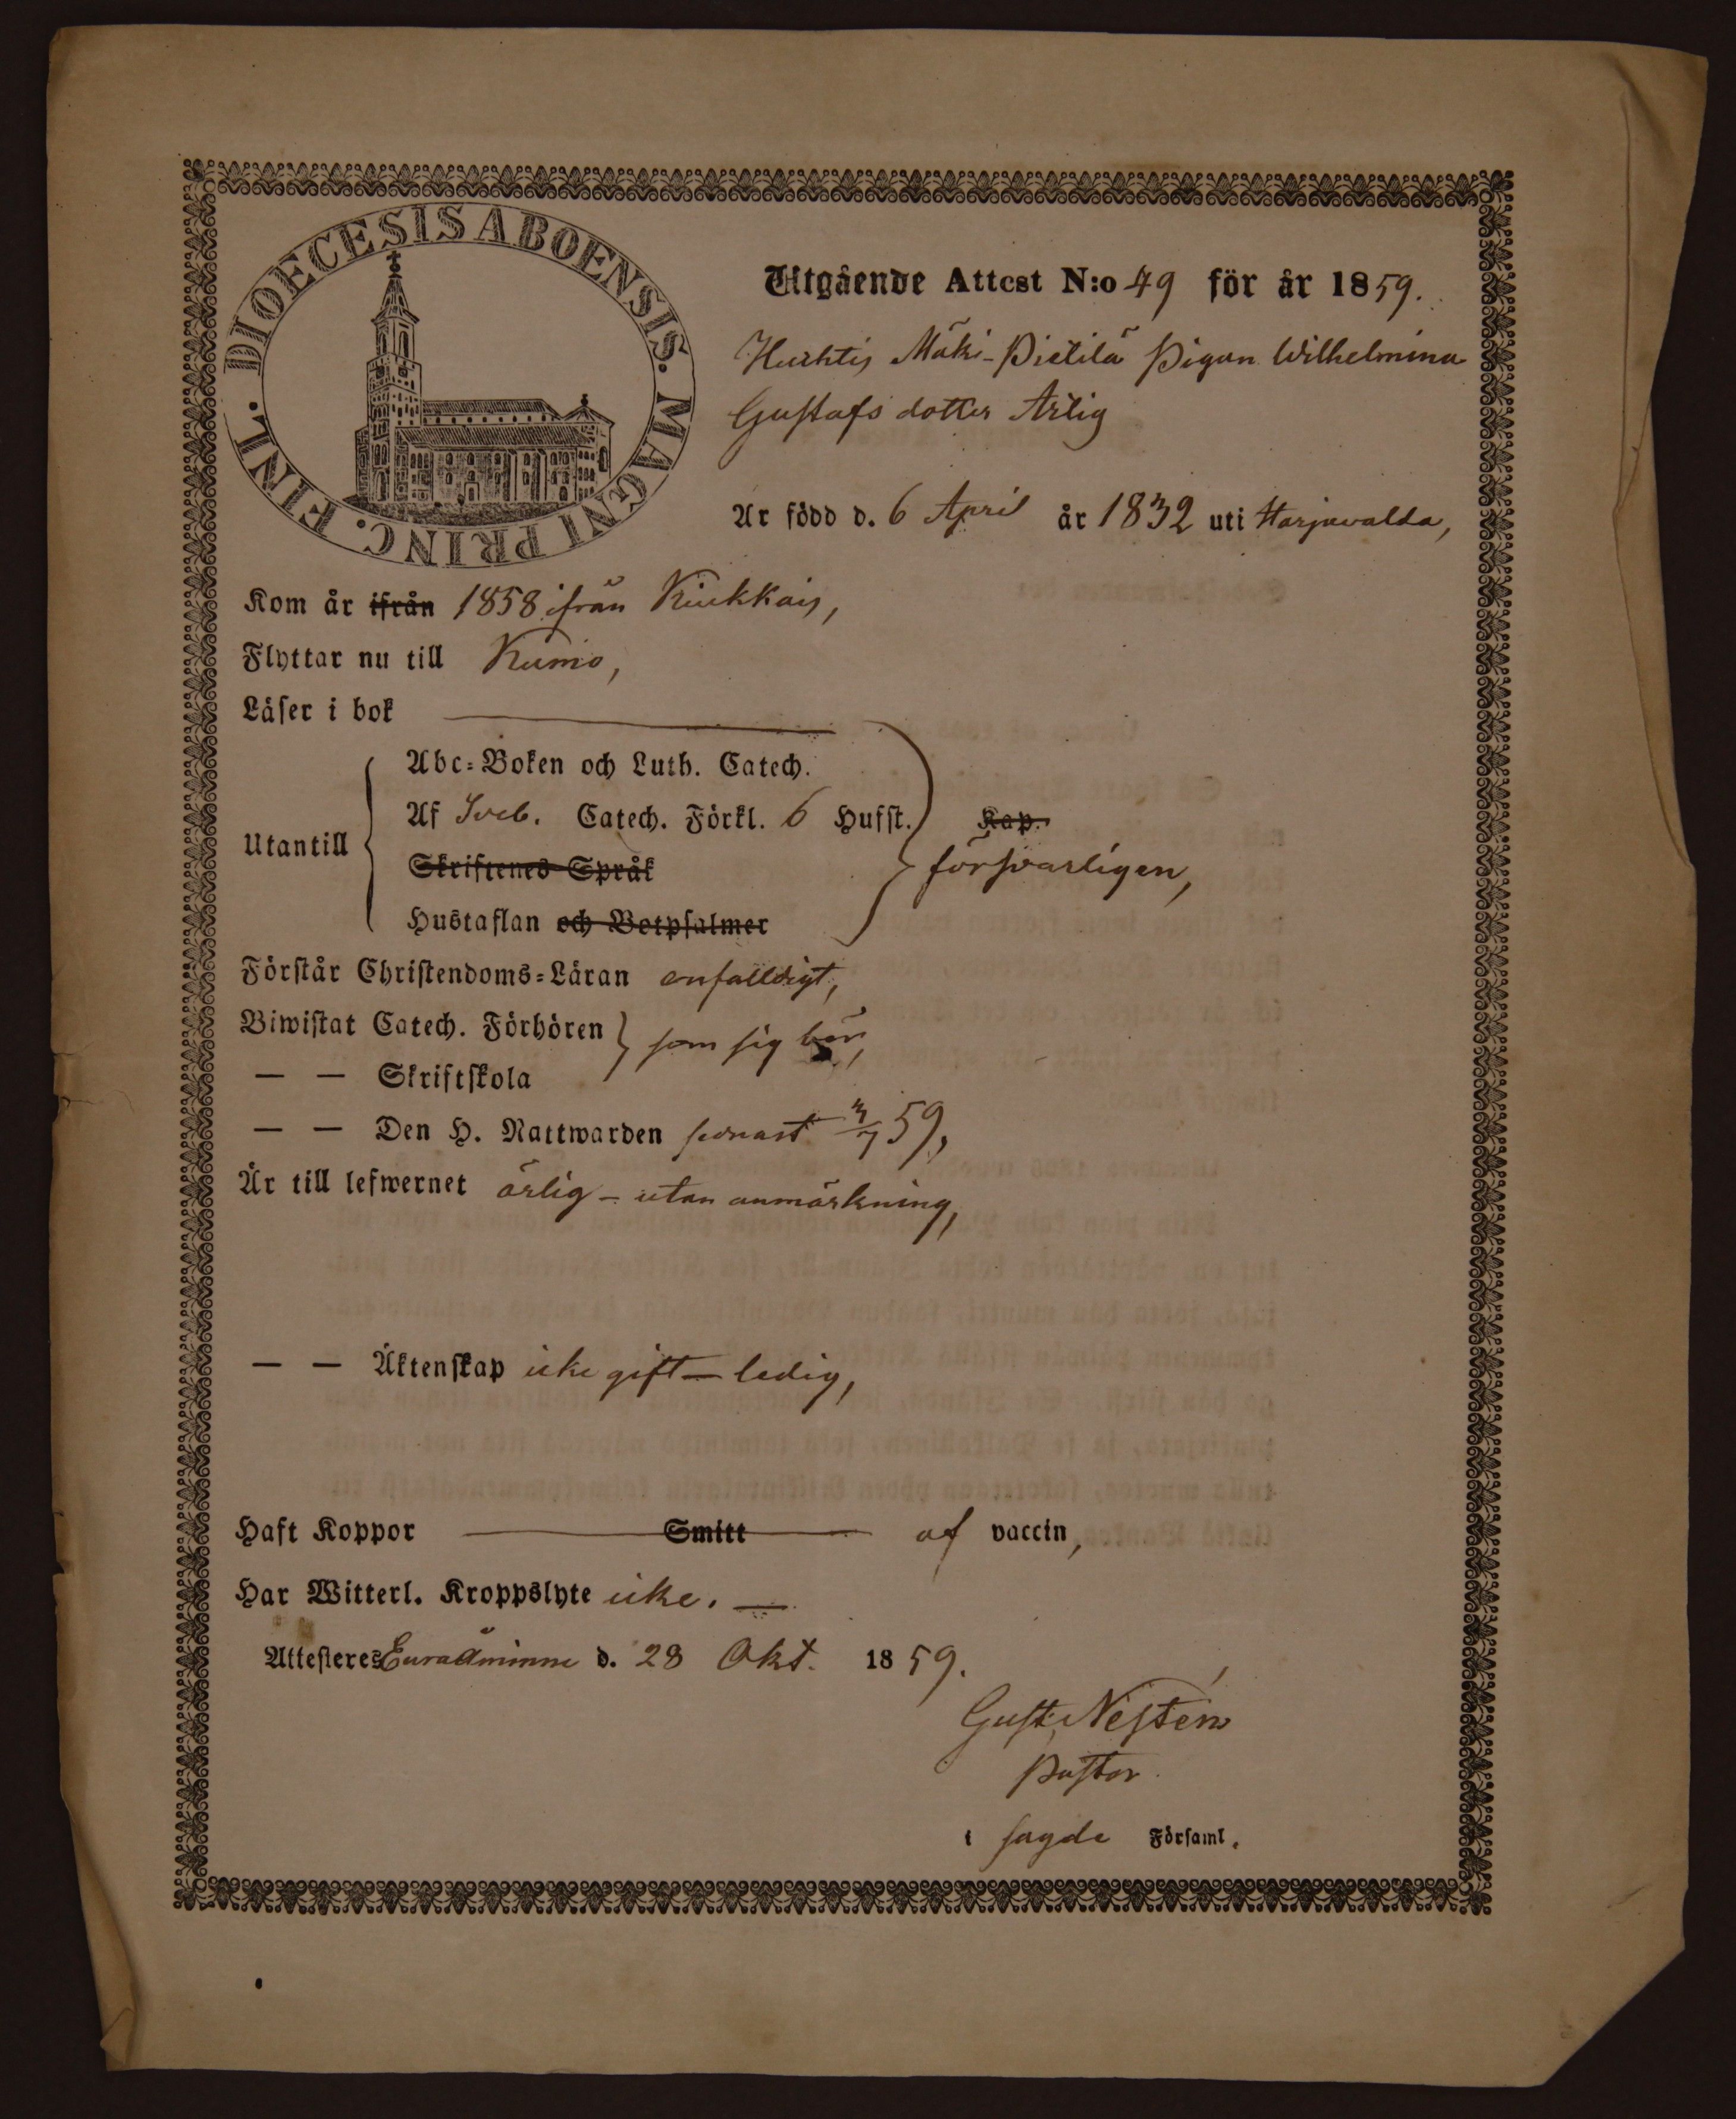 DIOECESIS ABOENSIS. MAGNI PRINC. FINL.
Utgående Attest N:o 49 för år 1859.
Huhtis Mäki-Pietilä Pigan Wilhelmina
Gustafs dotter Ärlig
Är född d. 6 April år 1832 uti Harjavalda,
Kom år ifrån 1858 ifrån Kiukkais,
Flyttar nu till Kumo,
Läser i bok
Abc-Boken och Luth. Catech.
Af Sveb. Catech. Förkl. 6 Hufst. Kap.
Utantill
Skriftenes Språk försvarligen,
Hustaflan och Botpsalmer
Förstår Christendoms-Läran enfalldigt,
Biwistat Catech. Förhören } som sig bör,
— — Skriftskola
— — Den H. Nattwarden senast 3/7 59,
Är till lefwernet ärlig - utan anmärkning,
— — Äktenskap icke gift - ledig,
Haft Koppor Smitt af vaccin,
Har Witterl. Kroppslyte icke. —
Attesteres Euraåminne d. 28 Okt. 1859.
Gust. Nestén
Pastor
i sagde Församl.